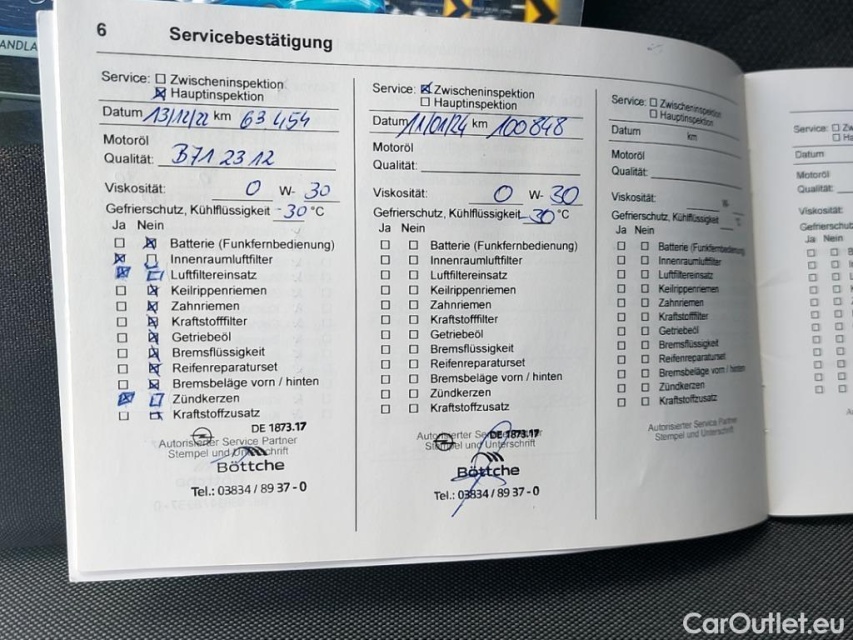 ANDLA
6 Servicebestätigung
Service: ☐ Zwischeninspektion
☒ Hauptinspektion
Datum 13/12/22 km 63 454
Motoröl
Qualität: B71 23 12
Viskosität: 0 W- 30
Gefrierschutz, Kühlflüssigkeit -30 °C
Ja Nein
Batterie (Funkfernbedienung)
Innenraumluftfilter
Luftfiltereinsatz
Keilrippenriemen
Zahnriemen
Kraftstofffilter
Getriebeöl
Bremsflüssigkeit
Reifenreparaturset
Bremsbeläge vorn / hinten
Zündkerzen
Kraftstoffzusatz
DE 1873.17
Autorisierter Service Partner
Stempel und Unterschrift
Böttche
Tel.: 03834 / 89 37 - 0
Service: ☒ Zwischeninspektion
☐ Hauptinspektion
Datum 11/01/24 km 100848
Motoröl
Qualität:
Viskosität: 0 W- 30
Gefrierschutz, Kühlflüssigkeit -30 °C
Ja Nein
Batterie (Funkfernbedienung)
Innenraumluftfilter
Luftfiltereinsatz
Keilrippenriemen
Zahnriemen
Kraftstofffilter
Getriebeöl
Bremsflüssigkeit
Reifenreparaturset
Bremsbeläge vorn / hinten
Zündkerzen
Kraftstoffzusatz
DE 1873.17
Autorisierter Service Partner
Stempel und Unterschrift
Böttche
Tel.: 03834 / 89 37 - 0
Service: ☐ Zwischeninspektion
☐ Hauptinspektion
Datum km
Motoröl
Qualität:
Viskosität: W-
Gefrierschutz, Kühlflüssigkeit °C
Ja Nein
Batterie (Funkfernbedienung)
Innenraumluftfilter
Luftfiltereinsatz
Keilrippenriemen
Zahnriemen
Kraftstofffilter
Getriebeöl
Bremsflüssigkeit
Reifenreparaturset
Bremsbeläge vorn / hinten
Zündkerzen
Kraftstoffzusatz
Autorisierter Service Partner
Stempel und Unterschrift
Service: ☐ Z
☐ Ha
Datum
Motoröl
Qualität:
Viskosität:
Gefrierschutz
Ja Nein
CarOutlet.eu